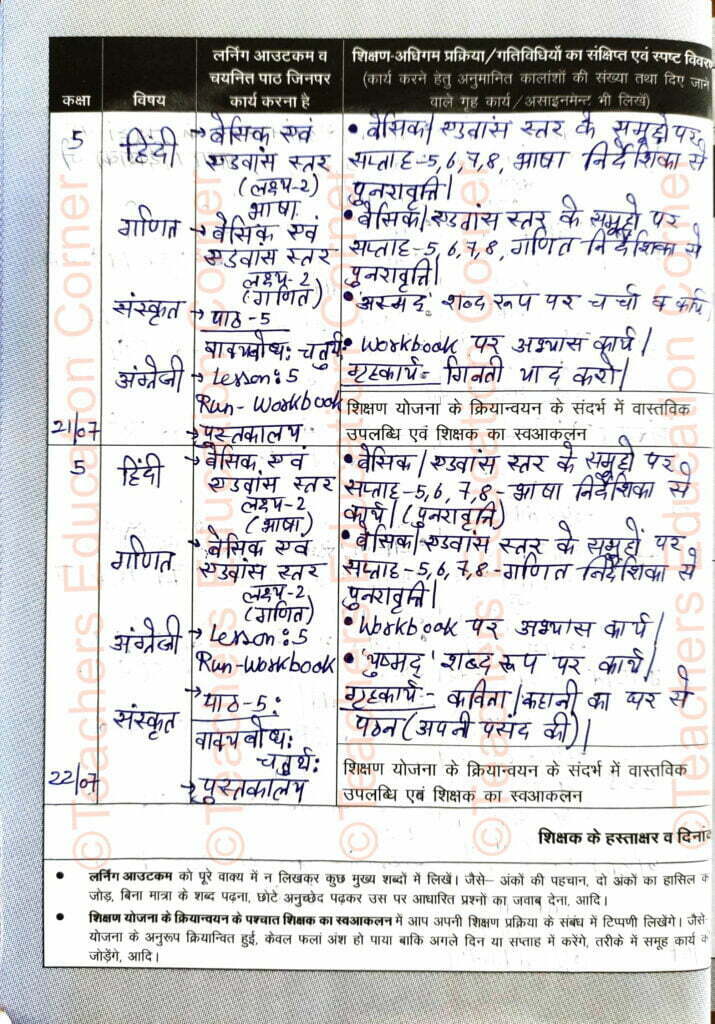 लर्निंग आउटकम व शिक्षण-अधिगम प्रक्रिया/गतिविधियों का संक्षिप्त एवं स्पष्ट
चयनित पाठ जिनपर (कार्य करने हेतु अनुमानित कालांशों की संख्या तथा दिए जाने
कक्षा विषय कार्य करना है वाले गृह कार्य/असाइनमेन्ट भी लिखें)
5 हिंदी → बेसिक एवं • बेसिक/एडवांस स्तर के समूहो पर
एडवांस स्तर सप्ताह-5,6,7,8, भाषा निर्देशिका से
(लक्ष्य-2) पुनरावृत्ति।
भाषा
गणित → बेसिक एवं • बेसिक/एडवांस स्तर के समूहो पर
एडवांस स्तर सप्ताह-5,6,7,8, गणित निर्देशिका से
लक्ष्य-2 पुनरावृत्ति।
(गणित)
संस्कृत → पाठ-5 • 'अस्मद्' शब्द रूप पर चर्चा व कार्य
वाक्यबोध: चतुर्थ: • Workbook पर अभ्यास कार्य।
अंग्रेजी → Lesson:5 गृहकार्य- गिनती याद करो।
Run-Workbook शिक्षण योजना के क्रियान्वयन के संदर्भ में वास्तविक
21/07 → पुस्तकालय उपलब्धि एवं शिक्षक का स्वआकलन
5 हिंदी → बेसिक एवं • बेसिक/एडवांस स्तर के समूहो पर
एडवांस स्तर सप्ताह-5,6,7,8-भाषा निर्देशिका से
लक्ष्य-2 कार्य।(पुनरावृत्ति)
(भाषा)
गणित → बेसिक एवं • बेसिक/एडवांस स्तर के समूहों पर
एडवांस स्तर सप्ताह-5,6,7,8-गणित निर्देशिका से
लक्ष्य-2 पुनरावृत्ति।
(गणित)
अंग्रेजी → Lesson:5 • Workbook पर अभ्यास कार्य।
Run-Workbook • 'युष्मद्' शब्द रूप पर कार्य।
संस्कृत → पाठ-5: गृहकार्य:- कविता/कहानी का घर से
वाक्यबोध: पठन(अपनी पसंद की)।
चतुर्थ:
22/07 → पुस्तकालय शिक्षण योजना के क्रियान्वयन के संदर्भ में वास्तविक
उपलब्धि एवं शिक्षक का स्वआकलन
शिक्षक के हस्ताक्षर व
• लर्निंग आउटकम को पूरे वाक्य में न लिखकर कुछ मुख्य शब्दों में लिखें। जैसे– अंकों की पहचान, दो अंकों का हासिल
जोड़, बिना मात्रा के शब्द पढ़ना, छोटे अनुच्छेद पढ़कर उस पर आधारित प्रश्नों का जवाब देना, आदि।
• शिक्षण योजना के क्रियान्वयन के पश्चात शिक्षक का स्वआकलन में आप अपनी शिक्षण प्रक्रिया के संबंध में टिप्पणी लिखेंगे। जैसे
योजना के अनुरूप क्रियान्वित हुई, केवल फलां अंश हो पाया बाकि अगले दिन या सप्ताह में करेंगे, तरीके में समूह कार्य
जोड़ेंगे, आदि।
©Teachers Education Corner
©Teachers Education Corner
©Teachers Education Corner
©Teachers Education Corner
©Teachers Education Corner